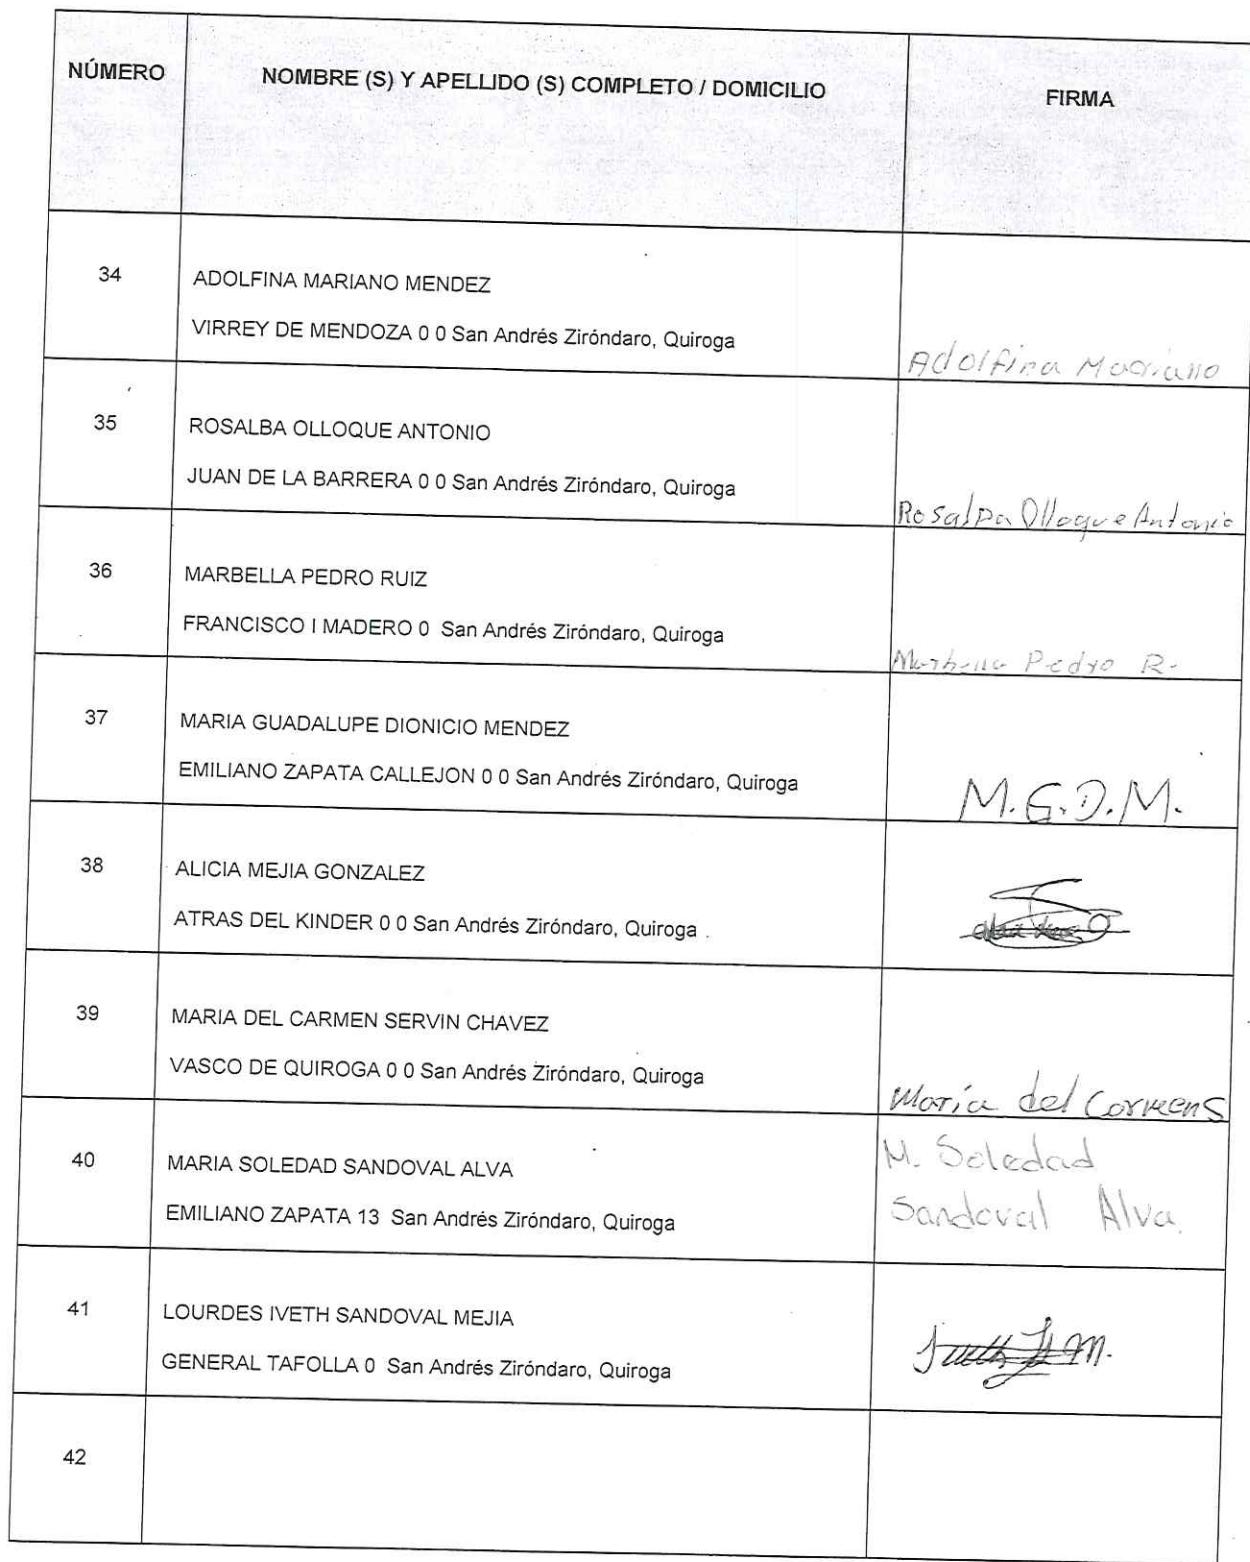 NÚMERO
NOMBRE (S) Y APELLIDO (S) COMPLETO / DOMICILIO
FIRMA
34
ADOLFINA MARIANO MENDEZ
VIRREY DE MENDOZA 0 0 San Andrés Ziróndaro, Quiroga
Adolfina Mariano
35
ROSALBA OLLOQUE ANTONIO
JUAN DE LA BARRERA 0 0 San Andrés Ziróndaro, Quiroga
Rosalba Olloque Antonio
36
MARBELLA PEDRO RUIZ
FRANCISCO I MADERO 0 San Andrés Ziróndaro, Quiroga
Marbella Pedro R.
37
MARIA GUADALUPE DIONICIO MENDEZ
EMILIANO ZAPATA CALLEJON 0 0 San Andrés Ziróndaro, Quiroga
M.G.D.M.
38
ALICIA MEJIA GONZALEZ
ATRAS DEL KINDER 0 0 San Andrés Ziróndaro, Quiroga
39
MARIA DEL CARMEN SERVIN CHAVEZ
VASCO DE QUIROGA 0 0 San Andrés Ziróndaro, Quiroga
María del Carmen S
40
MARIA SOLEDAD SANDOVAL ALVA
EMILIANO ZAPATA 13 San Andrés Ziróndaro, Quiroga
M. Soledad
Sandoval Alva.
41
LOURDES IVETH SANDOVAL MEJIA
GENERAL TAFOLLA 0 San Andrés Ziróndaro, Quiroga
42